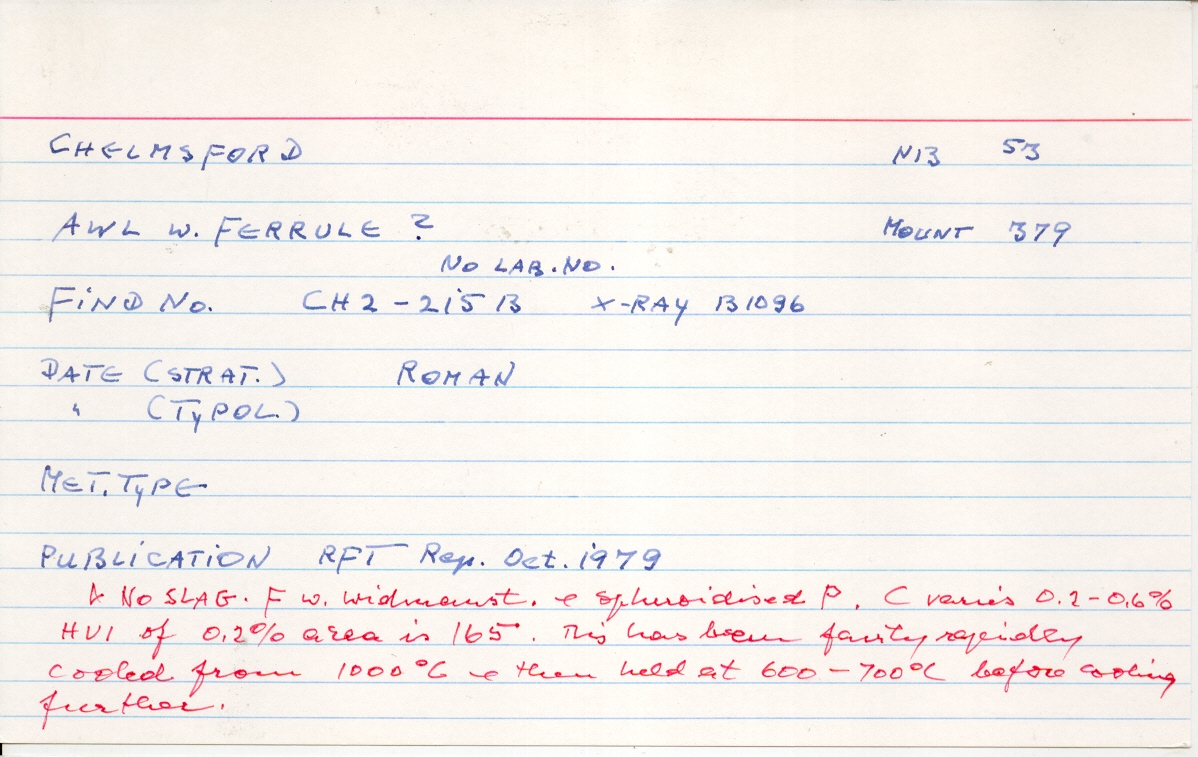 CHELMSFORD NB 53
AWL W. FERRULE ? MOUNT 379
NO LAB. NO.
FIND NO. CH2-215 B X-RAY B1096
DATE (STRAT.) ROMAN
" (TYPOL.)
MET. TYPE
PUBLICATION RFT Rep. Oct. 1979
NO SLAG. F w. widmanst. & spheroidised P. C varies 0.2-0.6%
HV1 of 0.2% area is 165. This has been fairly rapidly
cooled from 1000°C & then held at 600-700°C before cooling
further.